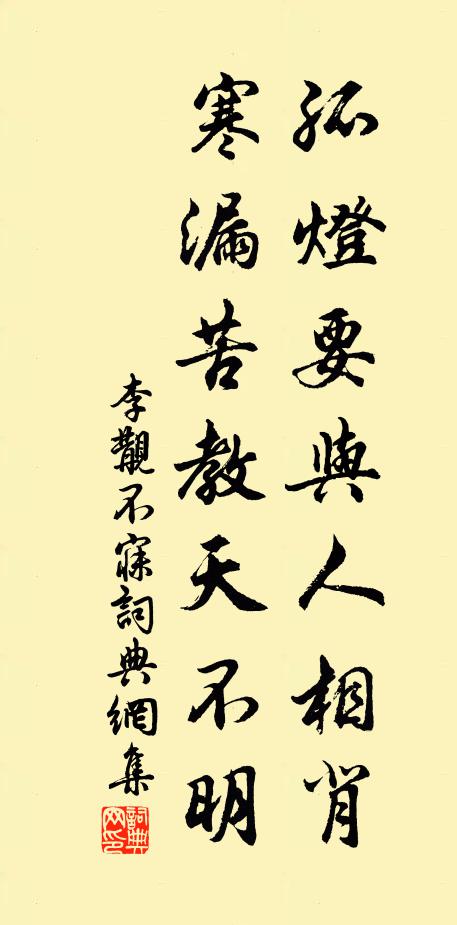 孤燈要與人相背
寒漏苦教天不明
李覯不寐詞典網集
詞典網印